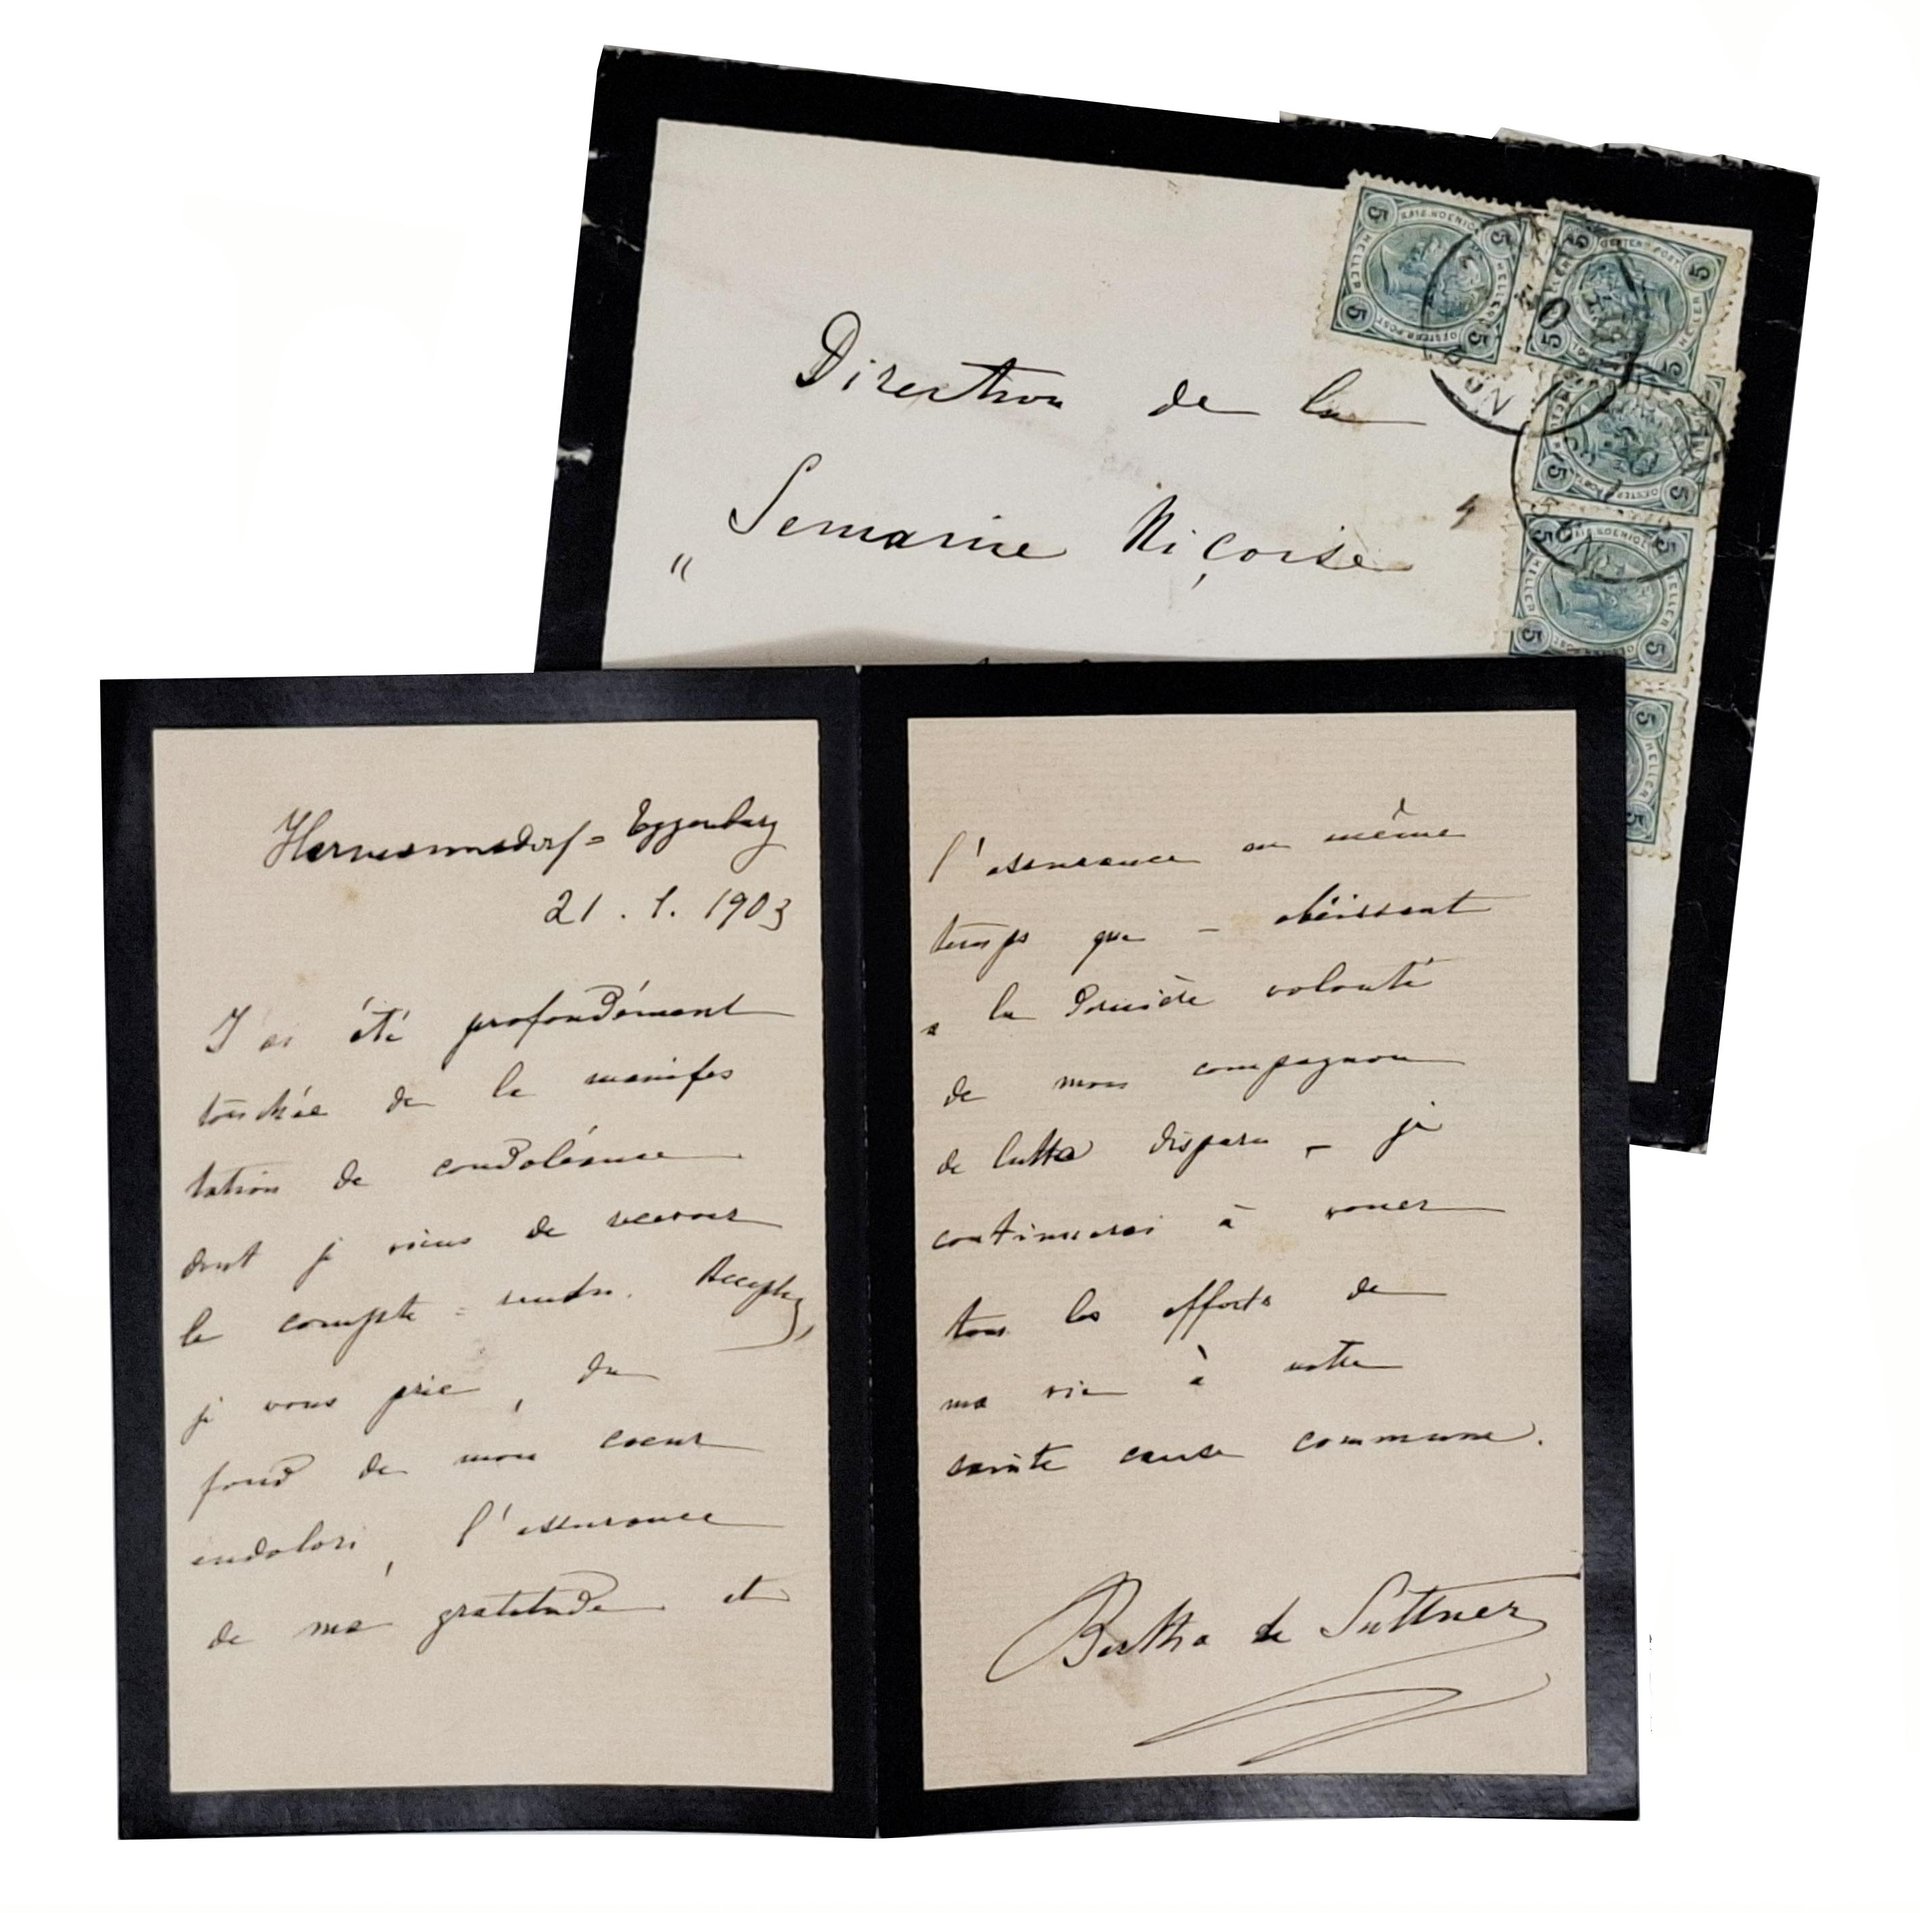 Direction de la
Semaine Niçoise
"
5 5 HELLER HELLER OESTERR.POST 5 5
5 5 HELLER 5 5
5 5 OESTERR.POST
5 5 HELLER HELLER 5 5
5 HELLER 5
Hermannsdorf = Eggenburg
21. 1. 1903
J'ai été profondément
touchée de la manifes
tation de condoléance
dont je viens de recevoir
le compte = rendu. Acceptez,
je vous prie, du
fond de mon coeur
endolori, l'assurance
de ma gratitude et
l'assurance en même
temps que – obéissant
a la dernière volonté
de mon compagnon
de lutte disparu – je
continuerai à vouer
tous les efforts de
ma vie à notre
sainte cause commune.
Bertha de Suttner